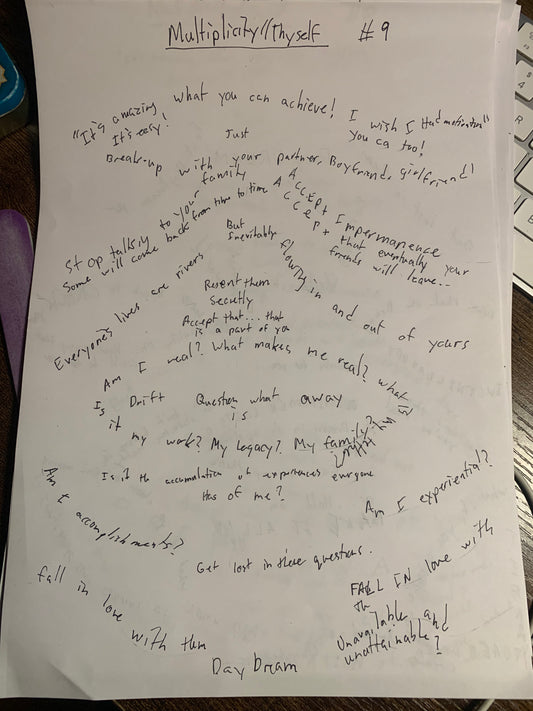 Multiplicity//thyself #9
"It's amazing what you can achieve! I wish I Had motivation"
It's easy! Just You ca too!
Break-up with your partner, Boyfriend, girlfriend!
Stop talking to your family
Some will come back from time to time
Accept Impermanence
Accept that eventually your
friends will leave...
But
Inevitably
Everyone's lives are rivers
flowing in and out of yours
Resent them
Secretly
Accept that... that
is a part of you
Am I real? What makes me real? What is
Drift Question what away
is
Is it my work? My legacy? My family?
Is it the accumulation of experiences everyone
Has of me?
Am I accomplishments?
Am I experiential?
Get lost in these questions.
fall in love with them
FALL IN love with
Th
Unavailable and
unattainable?
Day bream